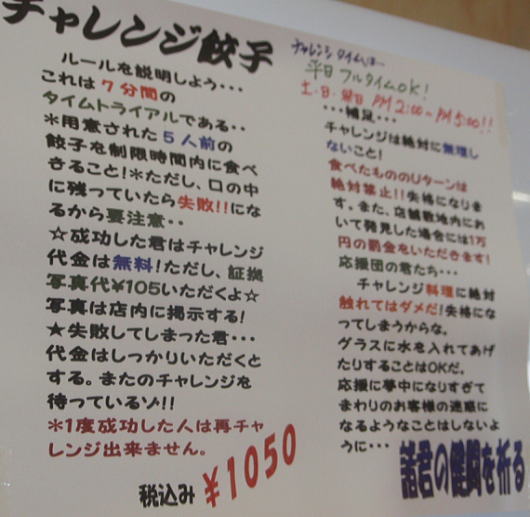 チャレンジ餃子
ルールを説明しよう・・・
これは７分間の
タイムトライアルである・・
＊用意された５人前の
餃子を制限時間内に食べ
きること!＊ただし、口の中
に残っていたら失敗!!にな
るから要注意・・
☆成功した君はチャレンジ
代金は無料!ただし、証拠
写真代¥105いただくよ☆
写真は店内に掲示する!
★失敗してしまった君・・・
代金はしっかりいただくと
する。またのチャレンジを
待っているゾ!!
＊1度成功した人は再チャ
レンジ出来ません。
税込み ¥1050
チャレンジタイムは…
平日フルタイムOK!
土・日・祭日 PM2:00〜PM5:00!!
・・・補足・・・
チャレンジは絶対に無理し
ないこと!
食べたもののUターンは
絶対禁止!!失格になりま
す。また、店舗敷地内にお
いて発見した場合には1万
円の罰金をいただきます!
応援団の君たち・・・
チャレンジ料理に絶対
触れてはダメだ!失格にな
ってしまうからな。
グラスに水を入れてあげ
たりすることはOKだ。
応援に夢中になりすぎて
まわりのお客様の迷惑に
なるようなことはしないよ
うに・・・
諸君の健闘を祈る